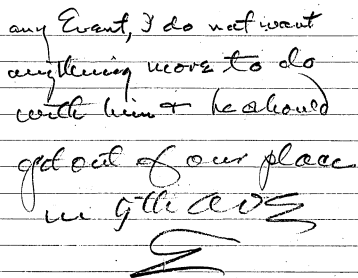 any Event, I do not want
anything more to do
with him & he should
get out of our place
in 9th Ave